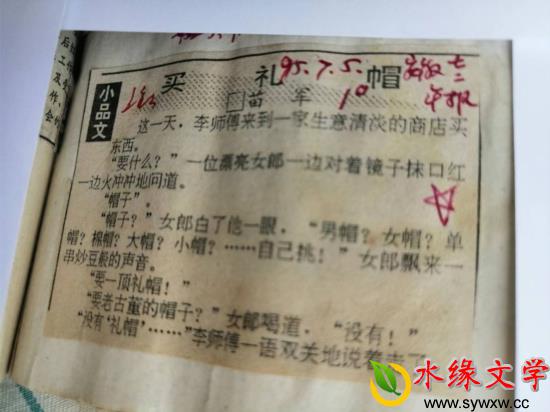 小品文
买礼帽
95.7.5.
苗军
10
这一天，李师傅来到一家生意清淡的商店买
东西。
“要什么？”一位漂亮女郎一边对着镜子抹口红
一边火冲冲地问道。
“帽子”。
“帽子？”女郎白了他一眼，“男帽？女帽？单
帽？棉帽？大帽？小帽？……自己挑！”女郎飘来一
串炒豆般的声音。
“要一顶礼帽！”
“要老古董的帽子？”女郎喝道，“没有！”
“没有‘礼帽’……”李师傅一语双关地说着走了
水缘文学
www.sywxw.cc